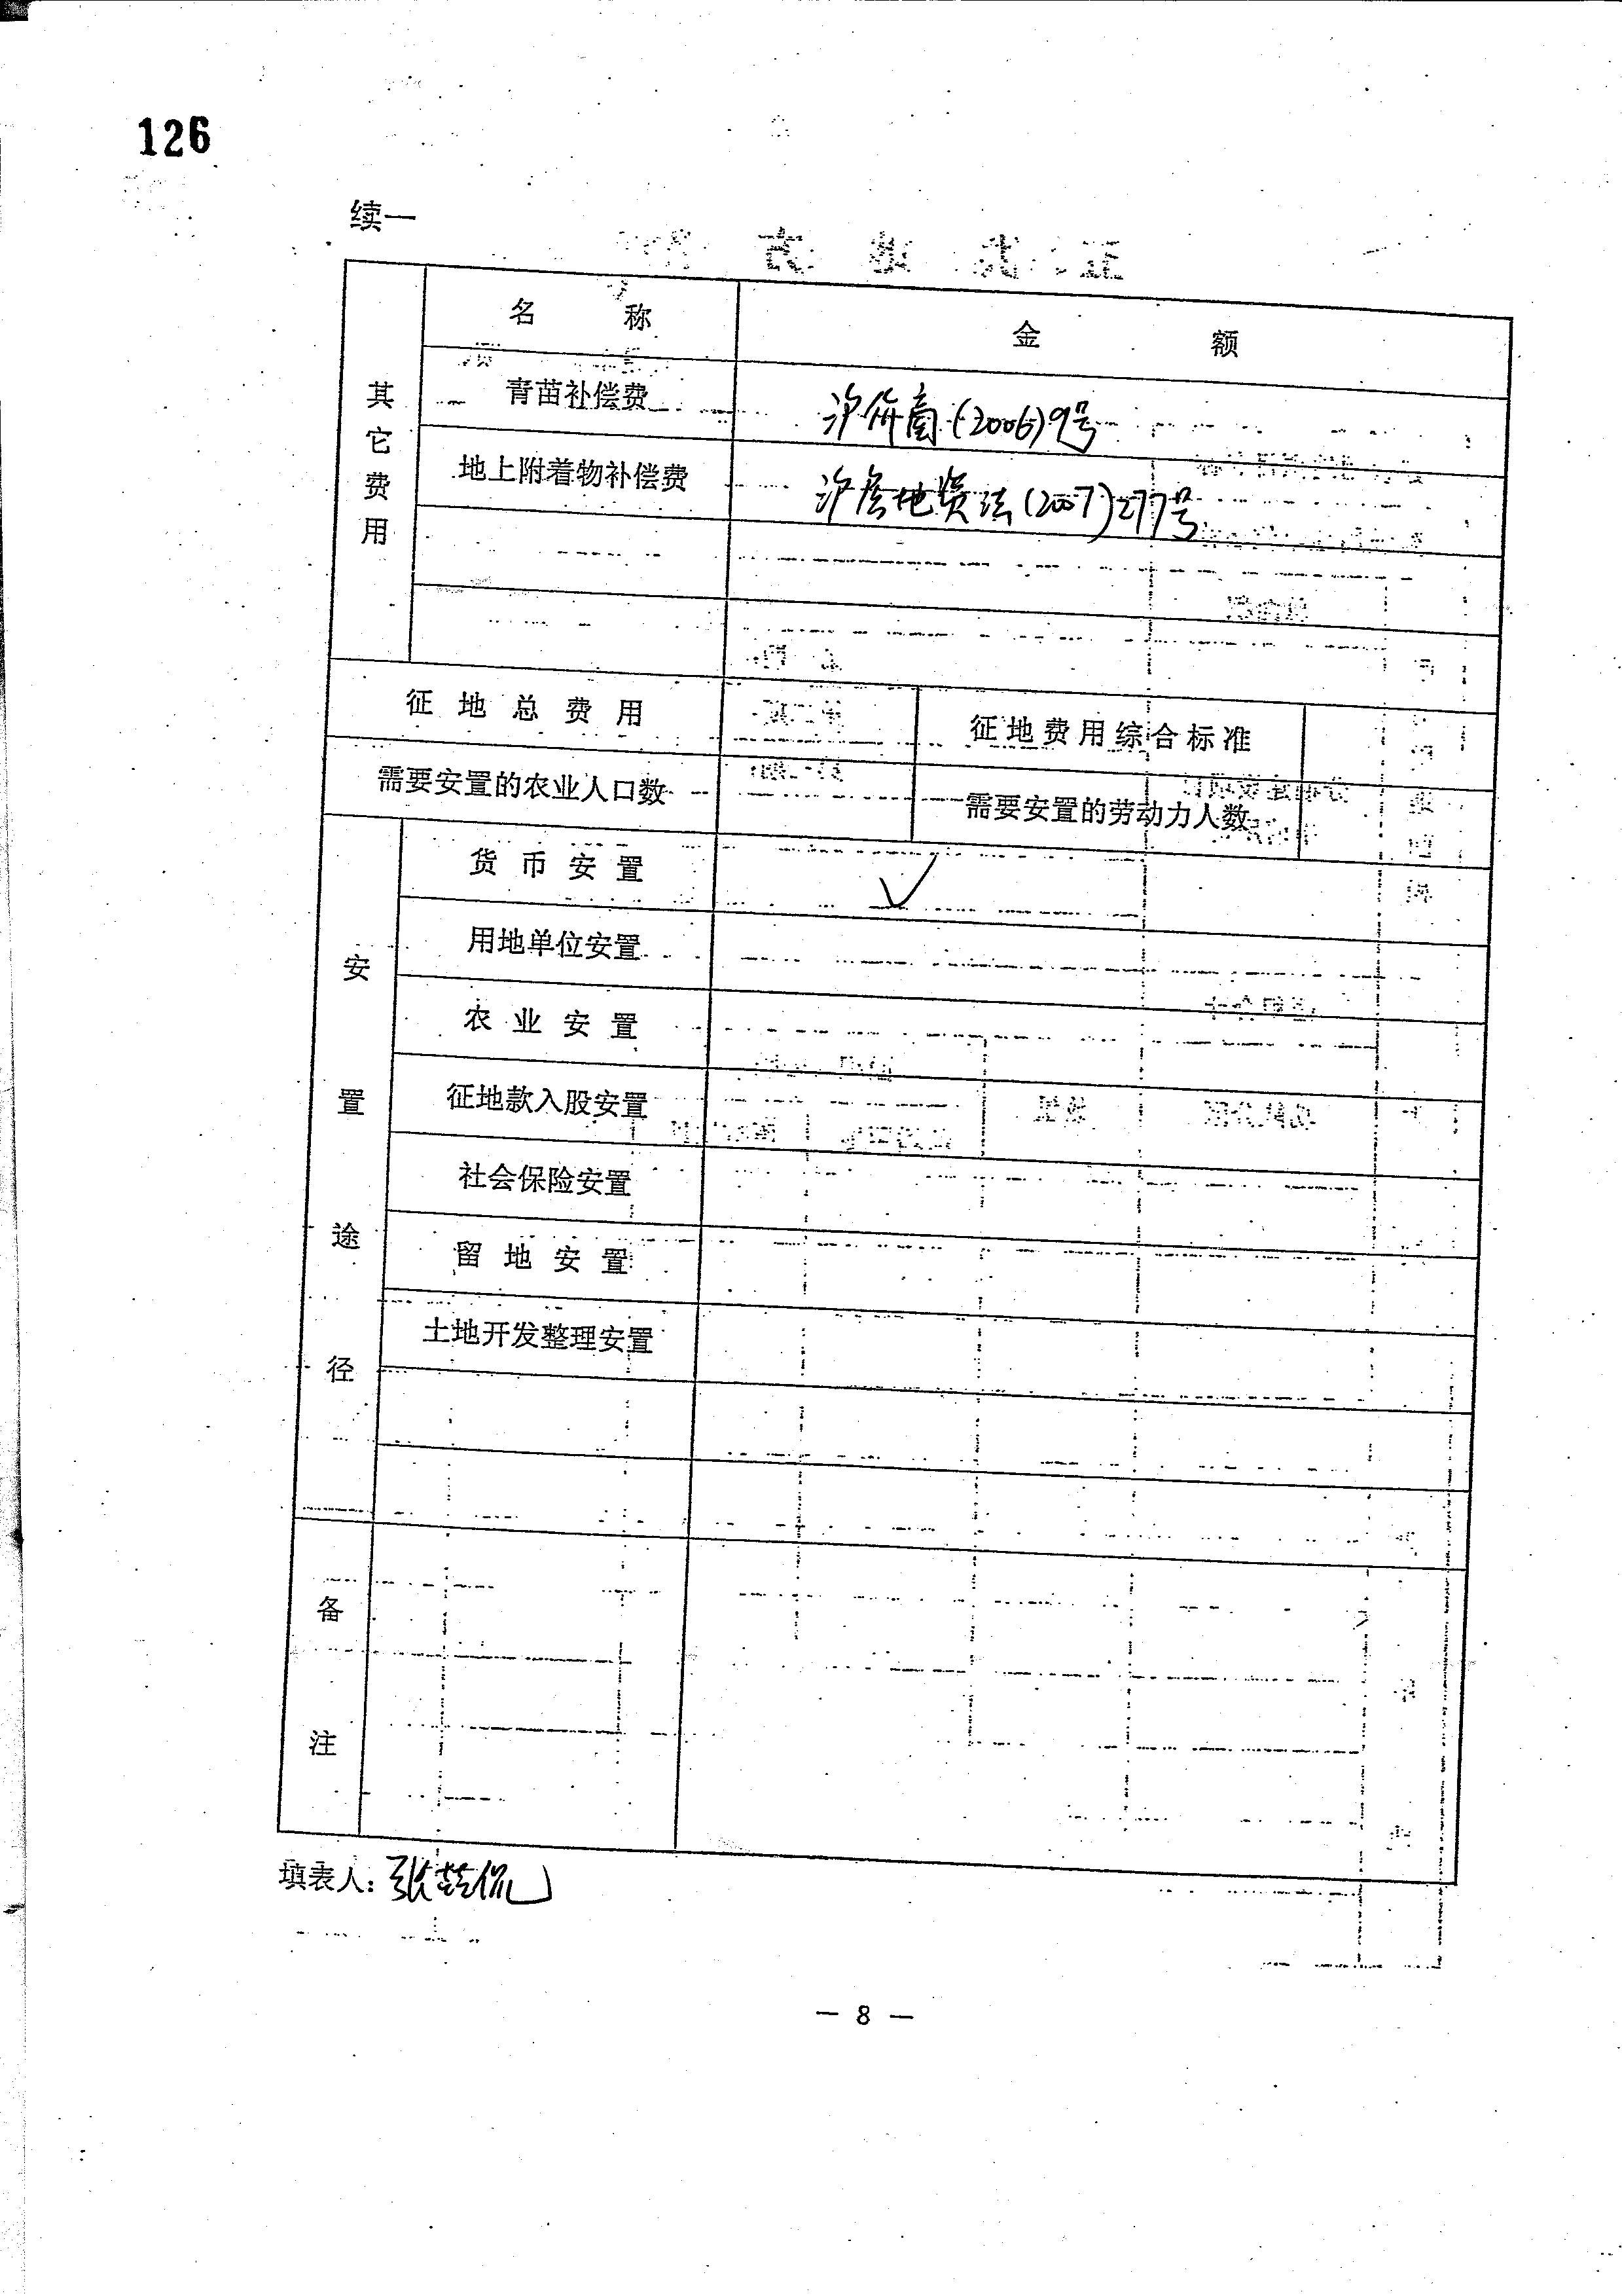 126
续一
名 称 金 额
其它费用
青苗补偿费 (2006)9号
地上附着物补偿费 沪房地资法(2007)277号
征地总费用 征地费用综合标准
需要安置的农业人口数 需要安置的劳动力人数
安置途径
货币安置 √
用地单位安置
农业安置
征地款入股安置
社会保险安置
留地安置
土地开发整理安置
备注
填表人：张
— 8 —